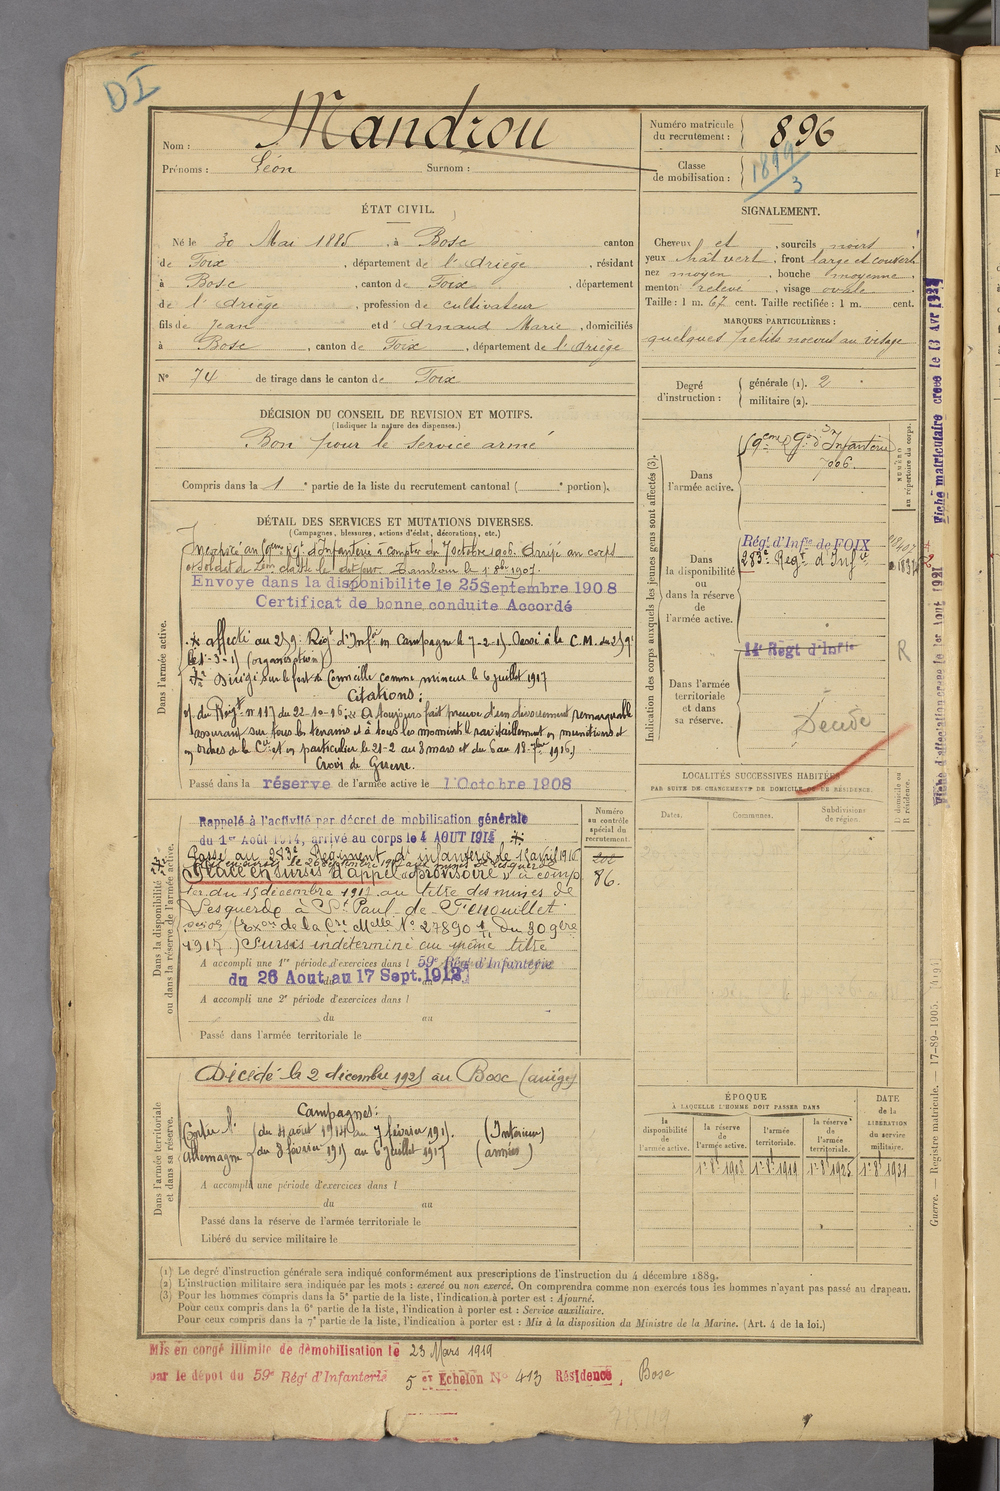 DI
Nom : Mandrou
Prénoms : Léon Surnom :
Numéro matricule du recrutement : 896
Classe de mobilisation : 1899/3
ÉTAT CIVIL.
Né le 30 Mai 1885, à Bosc canton
de Foix, département de l'Ariège, résidant
à Bosc, canton de Foix, département
de l'Ariège, profession de cultivateur
fils de Jean et d'Arnaud Marie, domiciliés
à Bosc, canton de Foix, département de l'Ariège
N° 74 de tirage dans le canton de Foix
SIGNALEMENT.
Cheveux et, sourcils noirs
yeux chât vert, front large et couvert
nez moyen, bouche moyenne
menton relevé, visage ovale
Taille : 1 m. 67 cent. Taille rectifiée : 1 m. cent.
MARQUES PARTICULIÈRES :
quelques petits au visage
Degré d'instruction : générale (1). 2
militaire (2).
DÉCISION DU CONSEIL DE REVISION ET MOTIFS.
(Indiquer la nature des dispenses.)
Bon pour le service armé
Compris dans la 1e partie de la liste du recrutement cantonal ( e portion).
DÉTAIL DES SERVICES ET MUTATIONS DIVERSES.
(Campagnes, blessures, actions d'éclat, décorations, etc.)
Dans l'armée active.
Incorporé au 59eme Régt d'Infanterie à compter du 7 octobre 1906. Arrivé au corps
et soldat de 2em classe le dit jour. Tambour le 1er 8bre 1907.
Envoyé dans la disponibilite le 25 Septembre 1908
Certificat de bonne conduite Accordé
affecté au 259e Régt d'Infie en Campagne le 7-2-15. Passé à la C.M. du 259e
le 1-3-15 (organisation)
Dirigé sur le fort de comme mineur le 6 juillet 1917
Citations :
O/ du Régt n° 117 du 22-10-16 : A toujours fait preuve d'un dévouement remarquable
assurant sur tous les terrains et à tous les moments le ravitaillement en munitions et
en ordres de la Cie et en particulier le 21-2 au 3 mars et du 6 au 18 7bre 1916.
Croix de Guerre.
Passé dans la réserve de l'armée active le 1 Octobre 1908
Indication des corps auxquels les jeunes gens sont affectés (3).
Dans l'armée active.
59eme Rgt d'Infanterie
7006.
NUMÉRO au répertoire du corps.
Dans la disponibilité ou dans la réserve de l'armée active.
Régt d'Infie de FOIX
283e Régt d'Infie
14e Regt d'Infie
R
Dans l'armée territoriale et dans sa réserve.
Décédé
LOCALITÉS SUCCESSIVES HABITÉES
PAR SUITE DE CHANGEMENTS DE DOMICILE OU DE RÉSIDENCE.
Dates. Communes. Subdivisions de région. D domicile ou R résidence.
Dans la disponibilité ou dans la réserve de l'armée active.
Numéro au contrôle spécial du recrutement.
86.
Rappelé à l'activité par décret de mobilisation générale
du 1er Août 1914, arrivé au corps le 4 AOUT 1914
Passé au 283e Régiment d'infanterie le 13 avril 1916
Placé en sursis d'appel "provisoire" à comp
ter du 15 décembre 1917 au titre des mines de
Lesquerde à St Paul de Fenouillet
de la Cre Mlle N° 27890 du 30 9bre
1917) Sursis indéterminé au même titre
A accompli une 1re période d'exercices dans l 59e Régt d'Infanterie
du 26 Aout au 17 Sept. 1912
A accompli une 2e période d'exercices dans l
du au
Passé dans l'armée territoriale le
Dans l'armée territoriale et dans sa réserve.
Décédé le 2 décembre 1925 au Bosc (Ariège)
Campagnes :
Contre l' du 4 août 1914 au 7 février 1915. (Intérieur)
Allemagne du 8 février 1915 au 6 juillet 1917 (armées)
A accompli une période d'exercices dans l
du au
Passé dans la réserve de l'armée territoriale le
Libéré du service militaire le
ÉPOQUE
À LAQUELLE L'HOMME DOIT PASSER DANS
la disponibilité de l'armée active. la réserve de l'armée active. l'armée territoriale. la réserve de l'armée territoriale.
DATE de la LIBÉRATION du service militaire.
1er 8bre 1908 1er 8bre 1919 1er 8bre 1925 1er 8bre 1931
Fiche matriculaire créée le 13 Avr 1927
Fiche d'affectation créée le 1er Aout 1921
Guerre. — Registre matricule. — 17-89-1905.
(1) Le degré d'instruction générale sera indiqué conformément aux prescriptions de l'instruction du 4 décembre 1889.
(2) L'instruction militaire sera indiquée par les mots : exercé ou non exercé. On comprendra comme non exercés tous les hommes n'ayant pas passé au drapeau.
(3) Pour les hommes compris dans la 5e partie de la liste, l'indication à porter est : Ajourné.
Pour ceux compris dans la 6e partie de la liste, l'indication à porter est : Service auxiliaire.
Pour ceux compris dans la 7e partie de la liste, l'indication à porter est : Mis à la disposition du Ministre de la Marine. (Art. 4 de la loi.)
Mis en congé illimité de démobilisation le 23 Mars 1919
par le dépôt du 59e Régt d'Infanterie 5 er Echelon N° 413 Résidence, Bosc